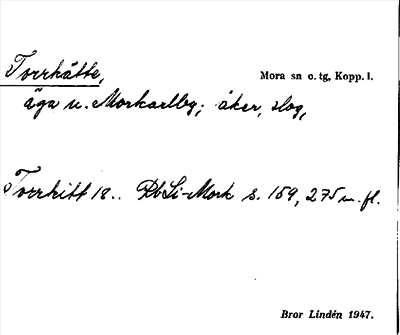 Tvrrhätte,
Mora sn o. tg, Kopp. l.
äga u. Morkarlby; åker, slog,
Tvrrhitt 18.. RbSi-Mork s. 159, 275 m. fl.
Bror Lindén 1947.